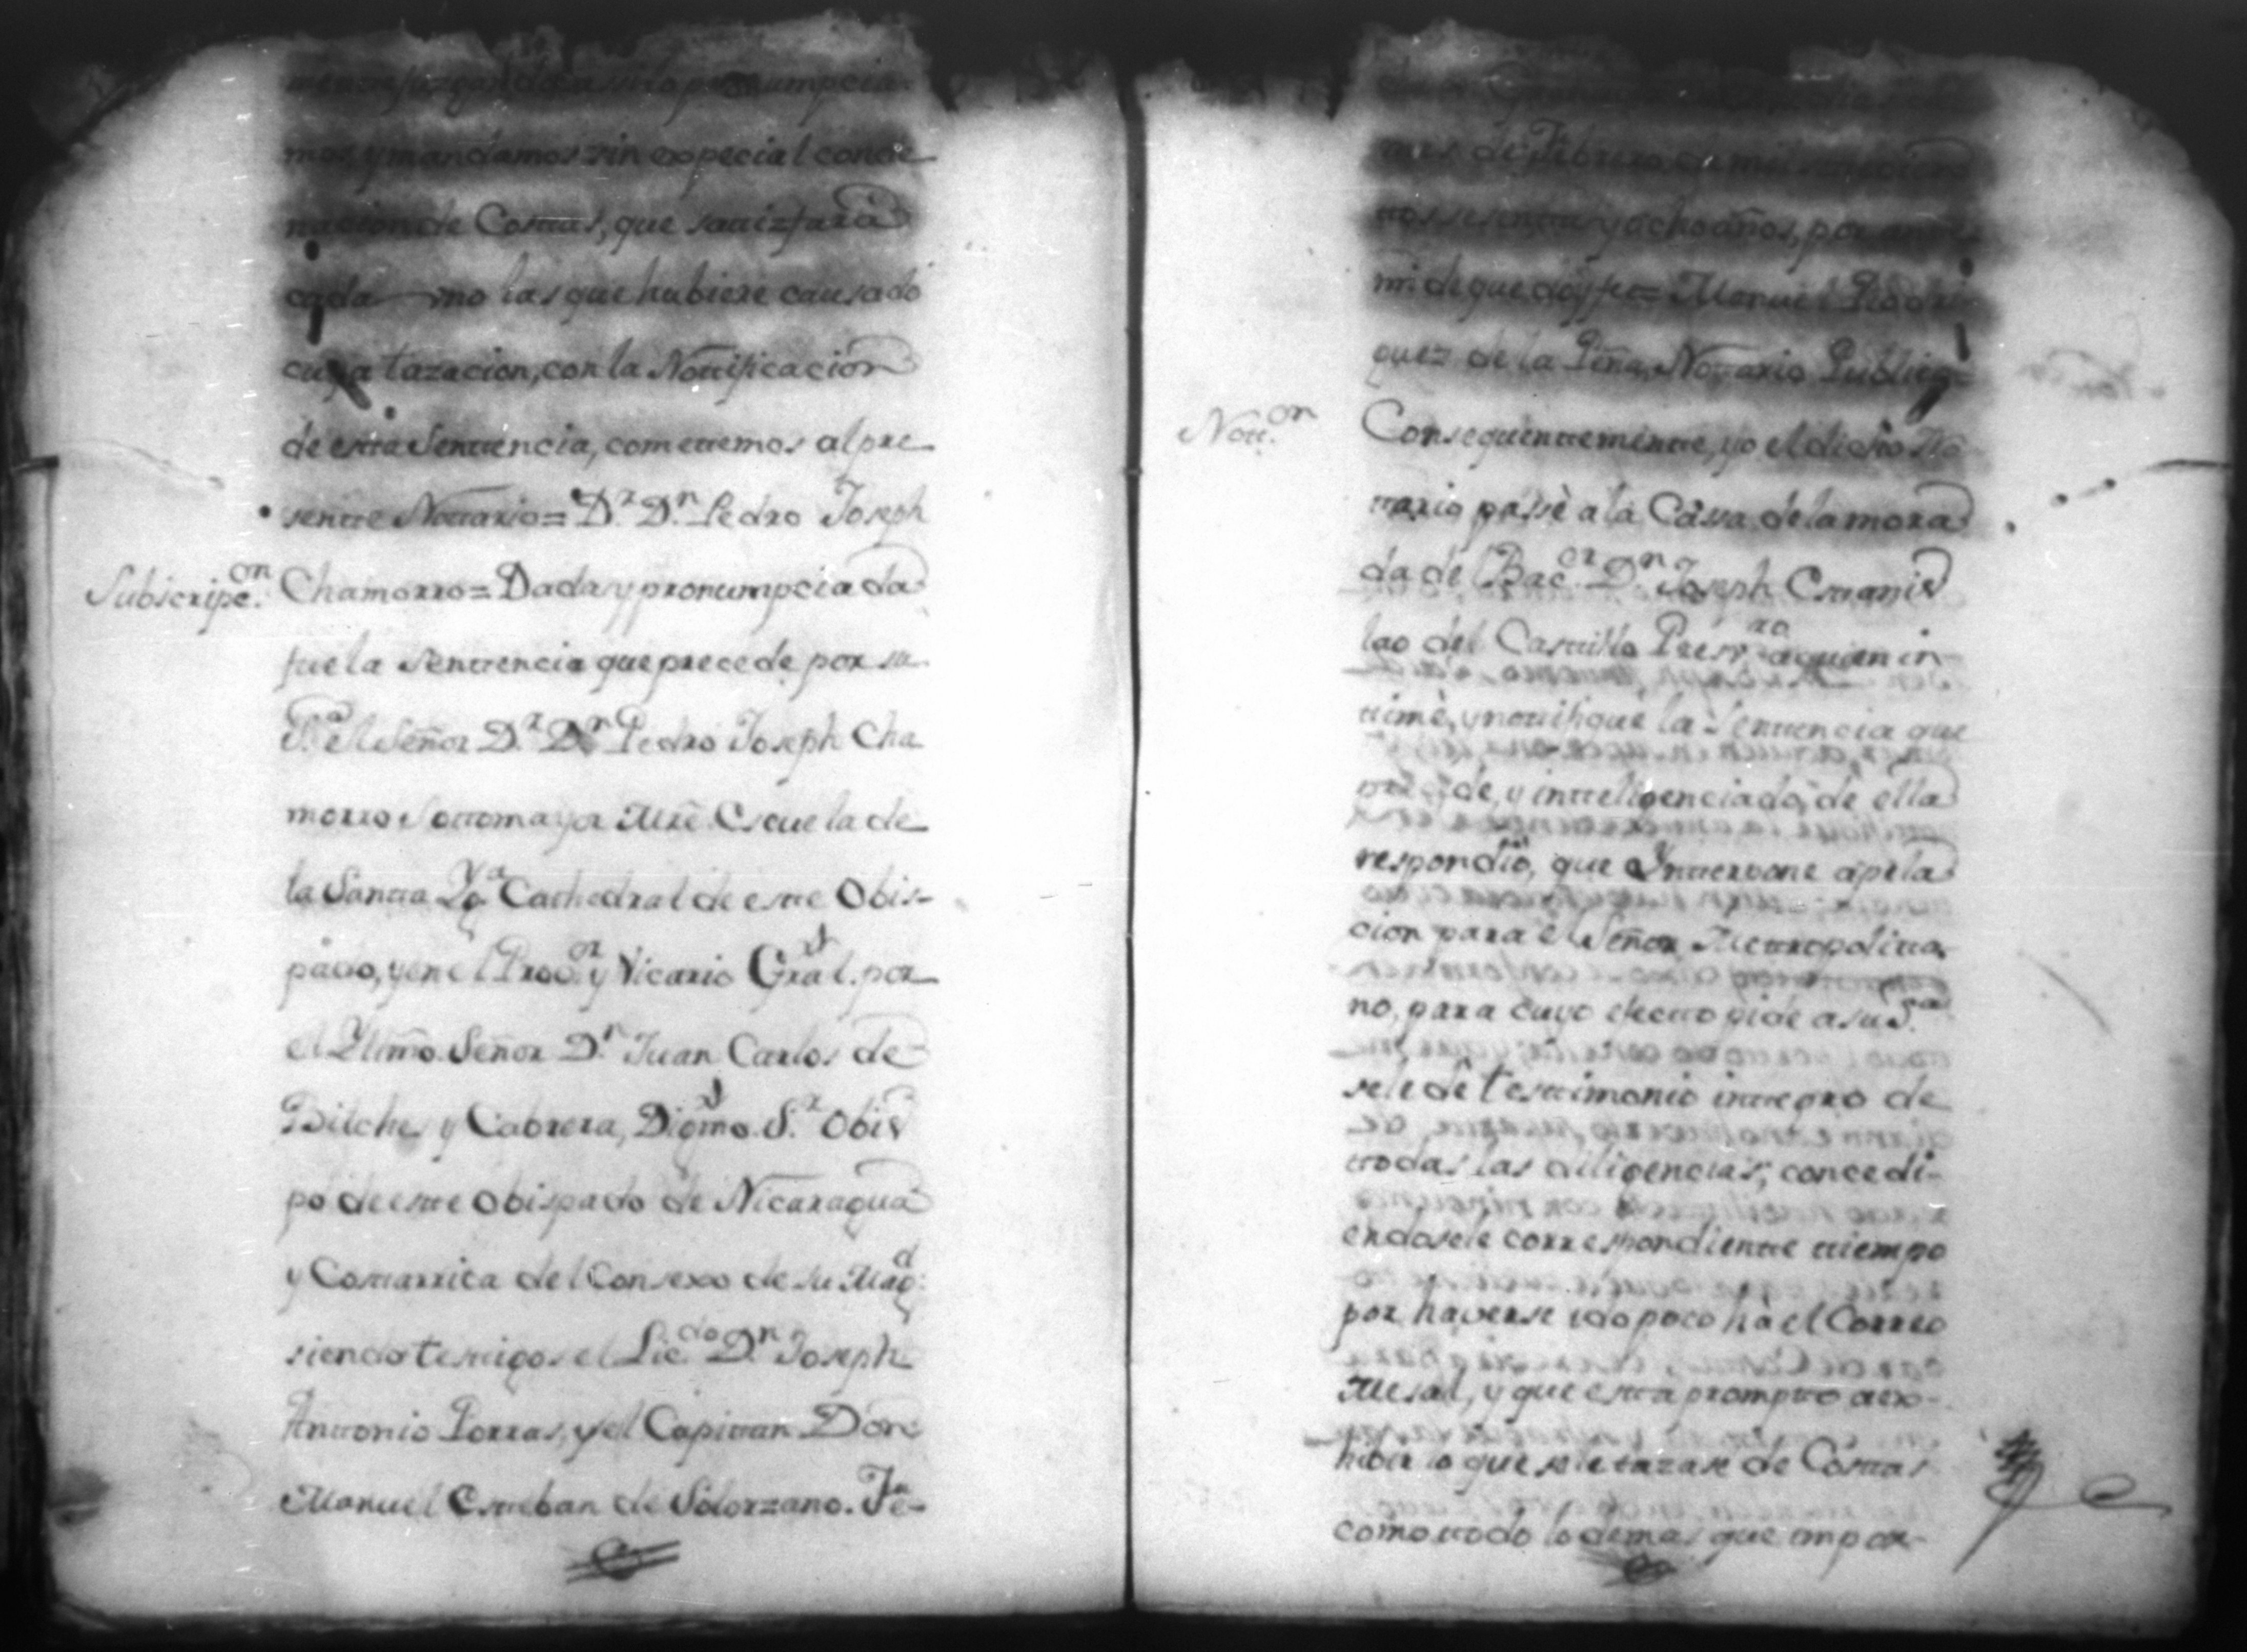 mente juzgando assi lo pronumpcia-
mos, y mandamos sin expecial conde
nacion de Costas, que satizfara
cada uno las que hubiere causado
cuya tazacion, con la Notificacion
de esta Sentencia, cometemos al pre-
sente Notario= D.r D.n Pedro Joseph
Subscripc.on
Chamorro= Dada y pronumpciada
fue la Sentencia que precede por su
S.a el Señor D.r D.n Pedro Joseph Cha
morro Sottomayor Mrẽ Escuela de
la Santa Yg.a Cathedral de este Obis-
pado, y en el Prov.or y Vicario Gral. por
el Yllmõ. Señor D.n Juan Carlos de
Bilches y Cabrera, Digmõ. S.r Obis
po de este Obispado de Nicaragua
y Costarrica del Consexo de su Mag.d
siendo testigos el Lic.do D.n Joseph
Antonio Porras, y el Capitan Don
Manuel Esteban de Solorzano. Fẽ-
mes de Febrero de mil setecien
tos sesenta y ocho años, por ante
mi de que doy fee= Manuel Rodri
guez de la Peña, Notario Publico=
Nott.on
Consequentemente, yo el dicho No
tario passè a la Casa de la mora
da de l Bac.er D.n Joseph Estanis
lao del Castillo Presv.ro a quien in-
timè, y notifiquè la Sentencia que
precede, y inteligenciado de ella
respondio, que Ynterpone apela
cion para el Señor Metropolita
no, para cuyo efecto pide a su S.ria
se le dè testimonio integro de
todas las diligencias, concedi-
endosele correspondiente tiempo
por haverse ido poco hà el Correo
Mesal, y que esta prompto aex-
hibir lo que se le tazare de Costas
como todo lo demas que impor-